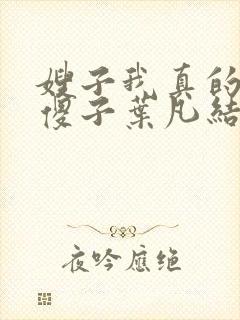 嫂子我真的
傻子葉凡結
夜吟應绝